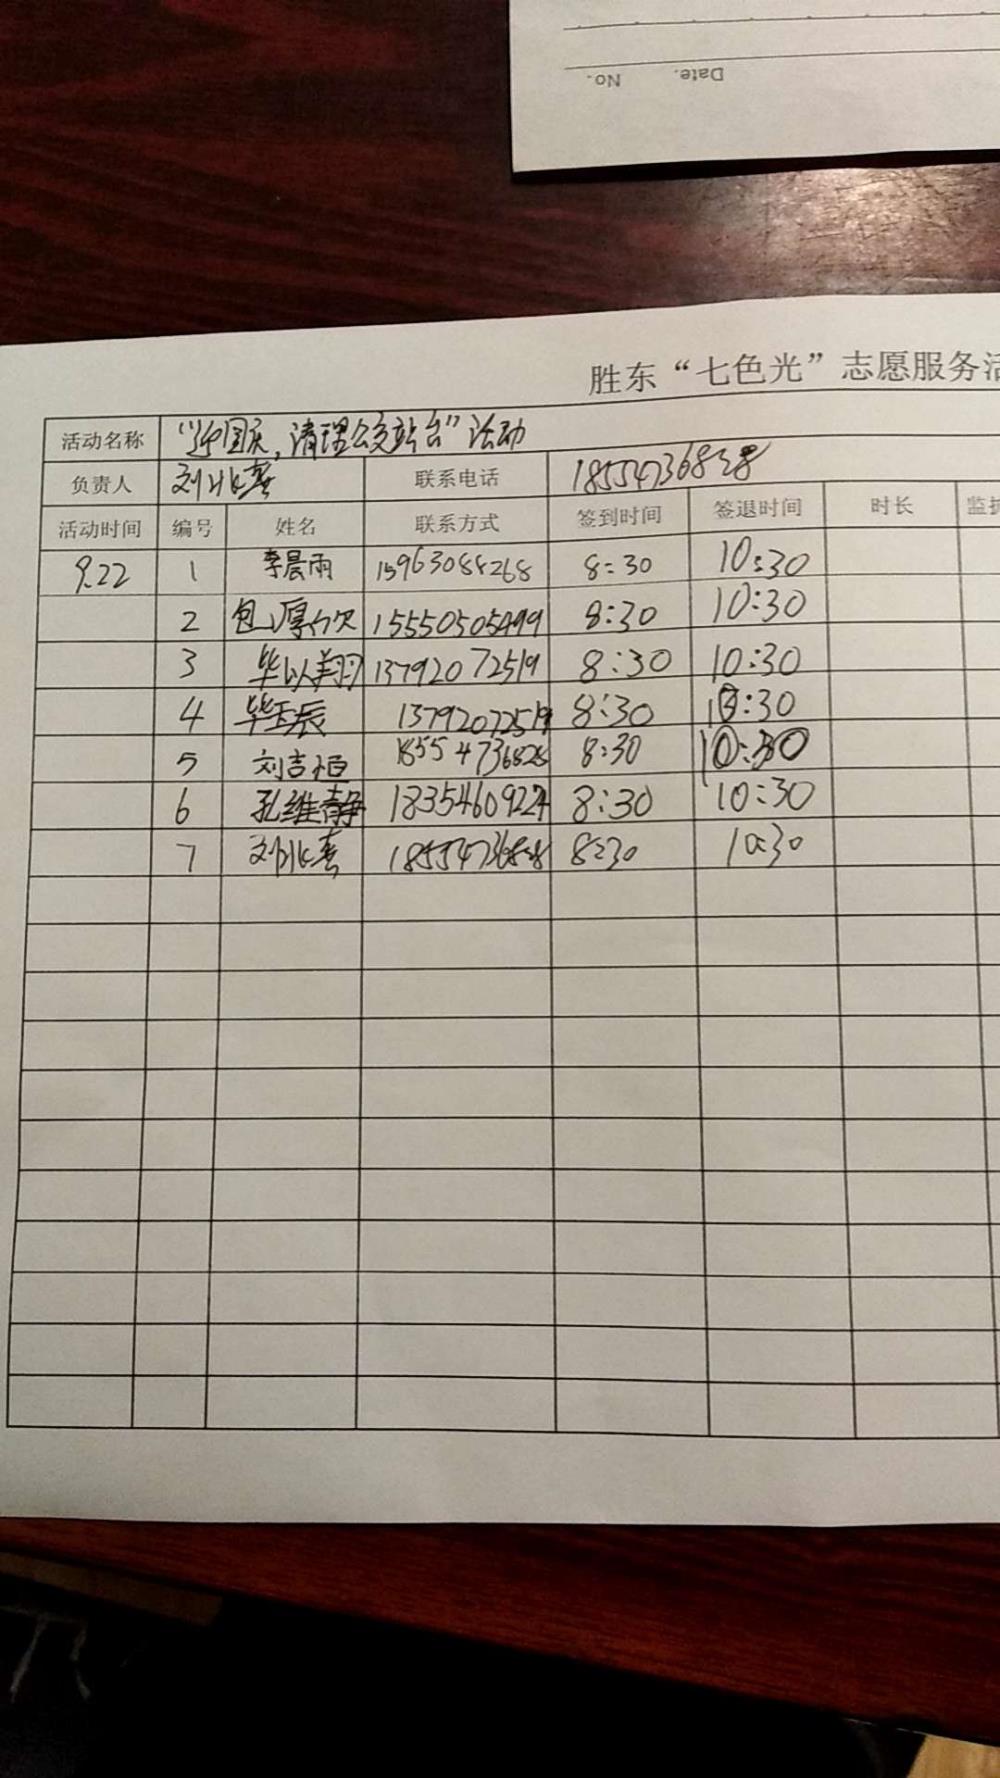 No.
Date.
胜东“七色光”志愿服务活
活动名称 “迎国庆，清理公交站台”活动
负责人 联系电话
活动时间 编号 姓名 联系方式 签到时间 签退时间 时长 监护
9.22 1 李晨雨 15963088268 8:30 10:30
2 15550505499 8:30 10:30
3 毕以翔 13792072519 8:30 10:30
4 毕玉辰 13792072519 8:30 10:30
5 刘吉恒 18554736828 8:30 10:30
6 孔维静 8:30 10:30
7 8:30 10:30